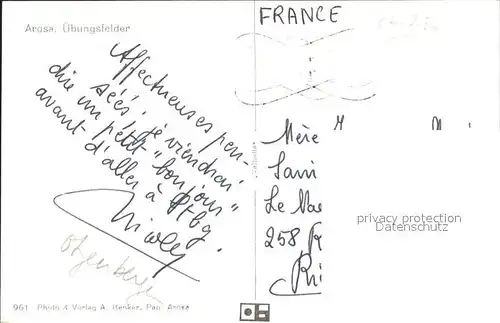 Arosa. Übungsfelder
FRANCE
Affectueuses pen-
sées. je viendrai
dire un petit "bonjour"
avant d'aller à Stbg.
Mère M M
Le
258, R
privacy protection
Datenschutz
961 Photo & Verlag A. Henker, Pap. Arosa